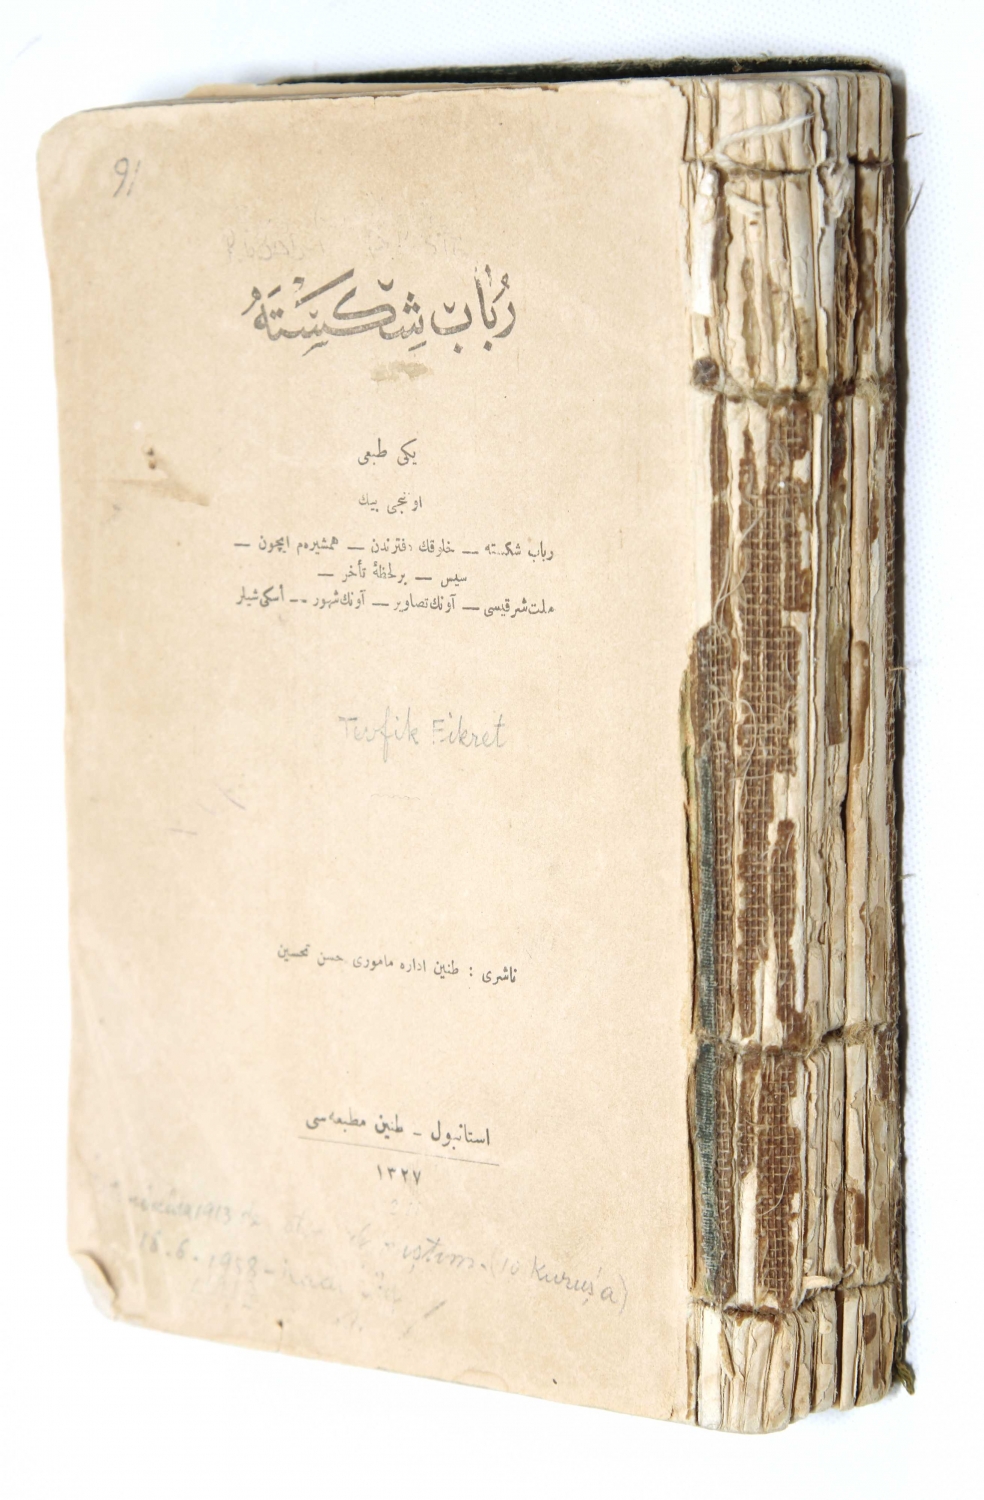 91
رُبَابِ شِكَسْتَهْ
يكی طبعی
اونجی بيك
رباب شكسته — خلوقك دفترندن — همشيره‌م ايچون —
سيس — برلحظهٔ تأخر —
ملت شرقيسی — آونك تصاوير — آونك شهور — أسكی شيلر
Tevfik Fikret
ناشری : طنين اداره مأموری حسن تحسين
استانبول ـ طنين مطبعه‌سی
١٣٢٧
1913 (10 Kuruş'a)
18.6.1958